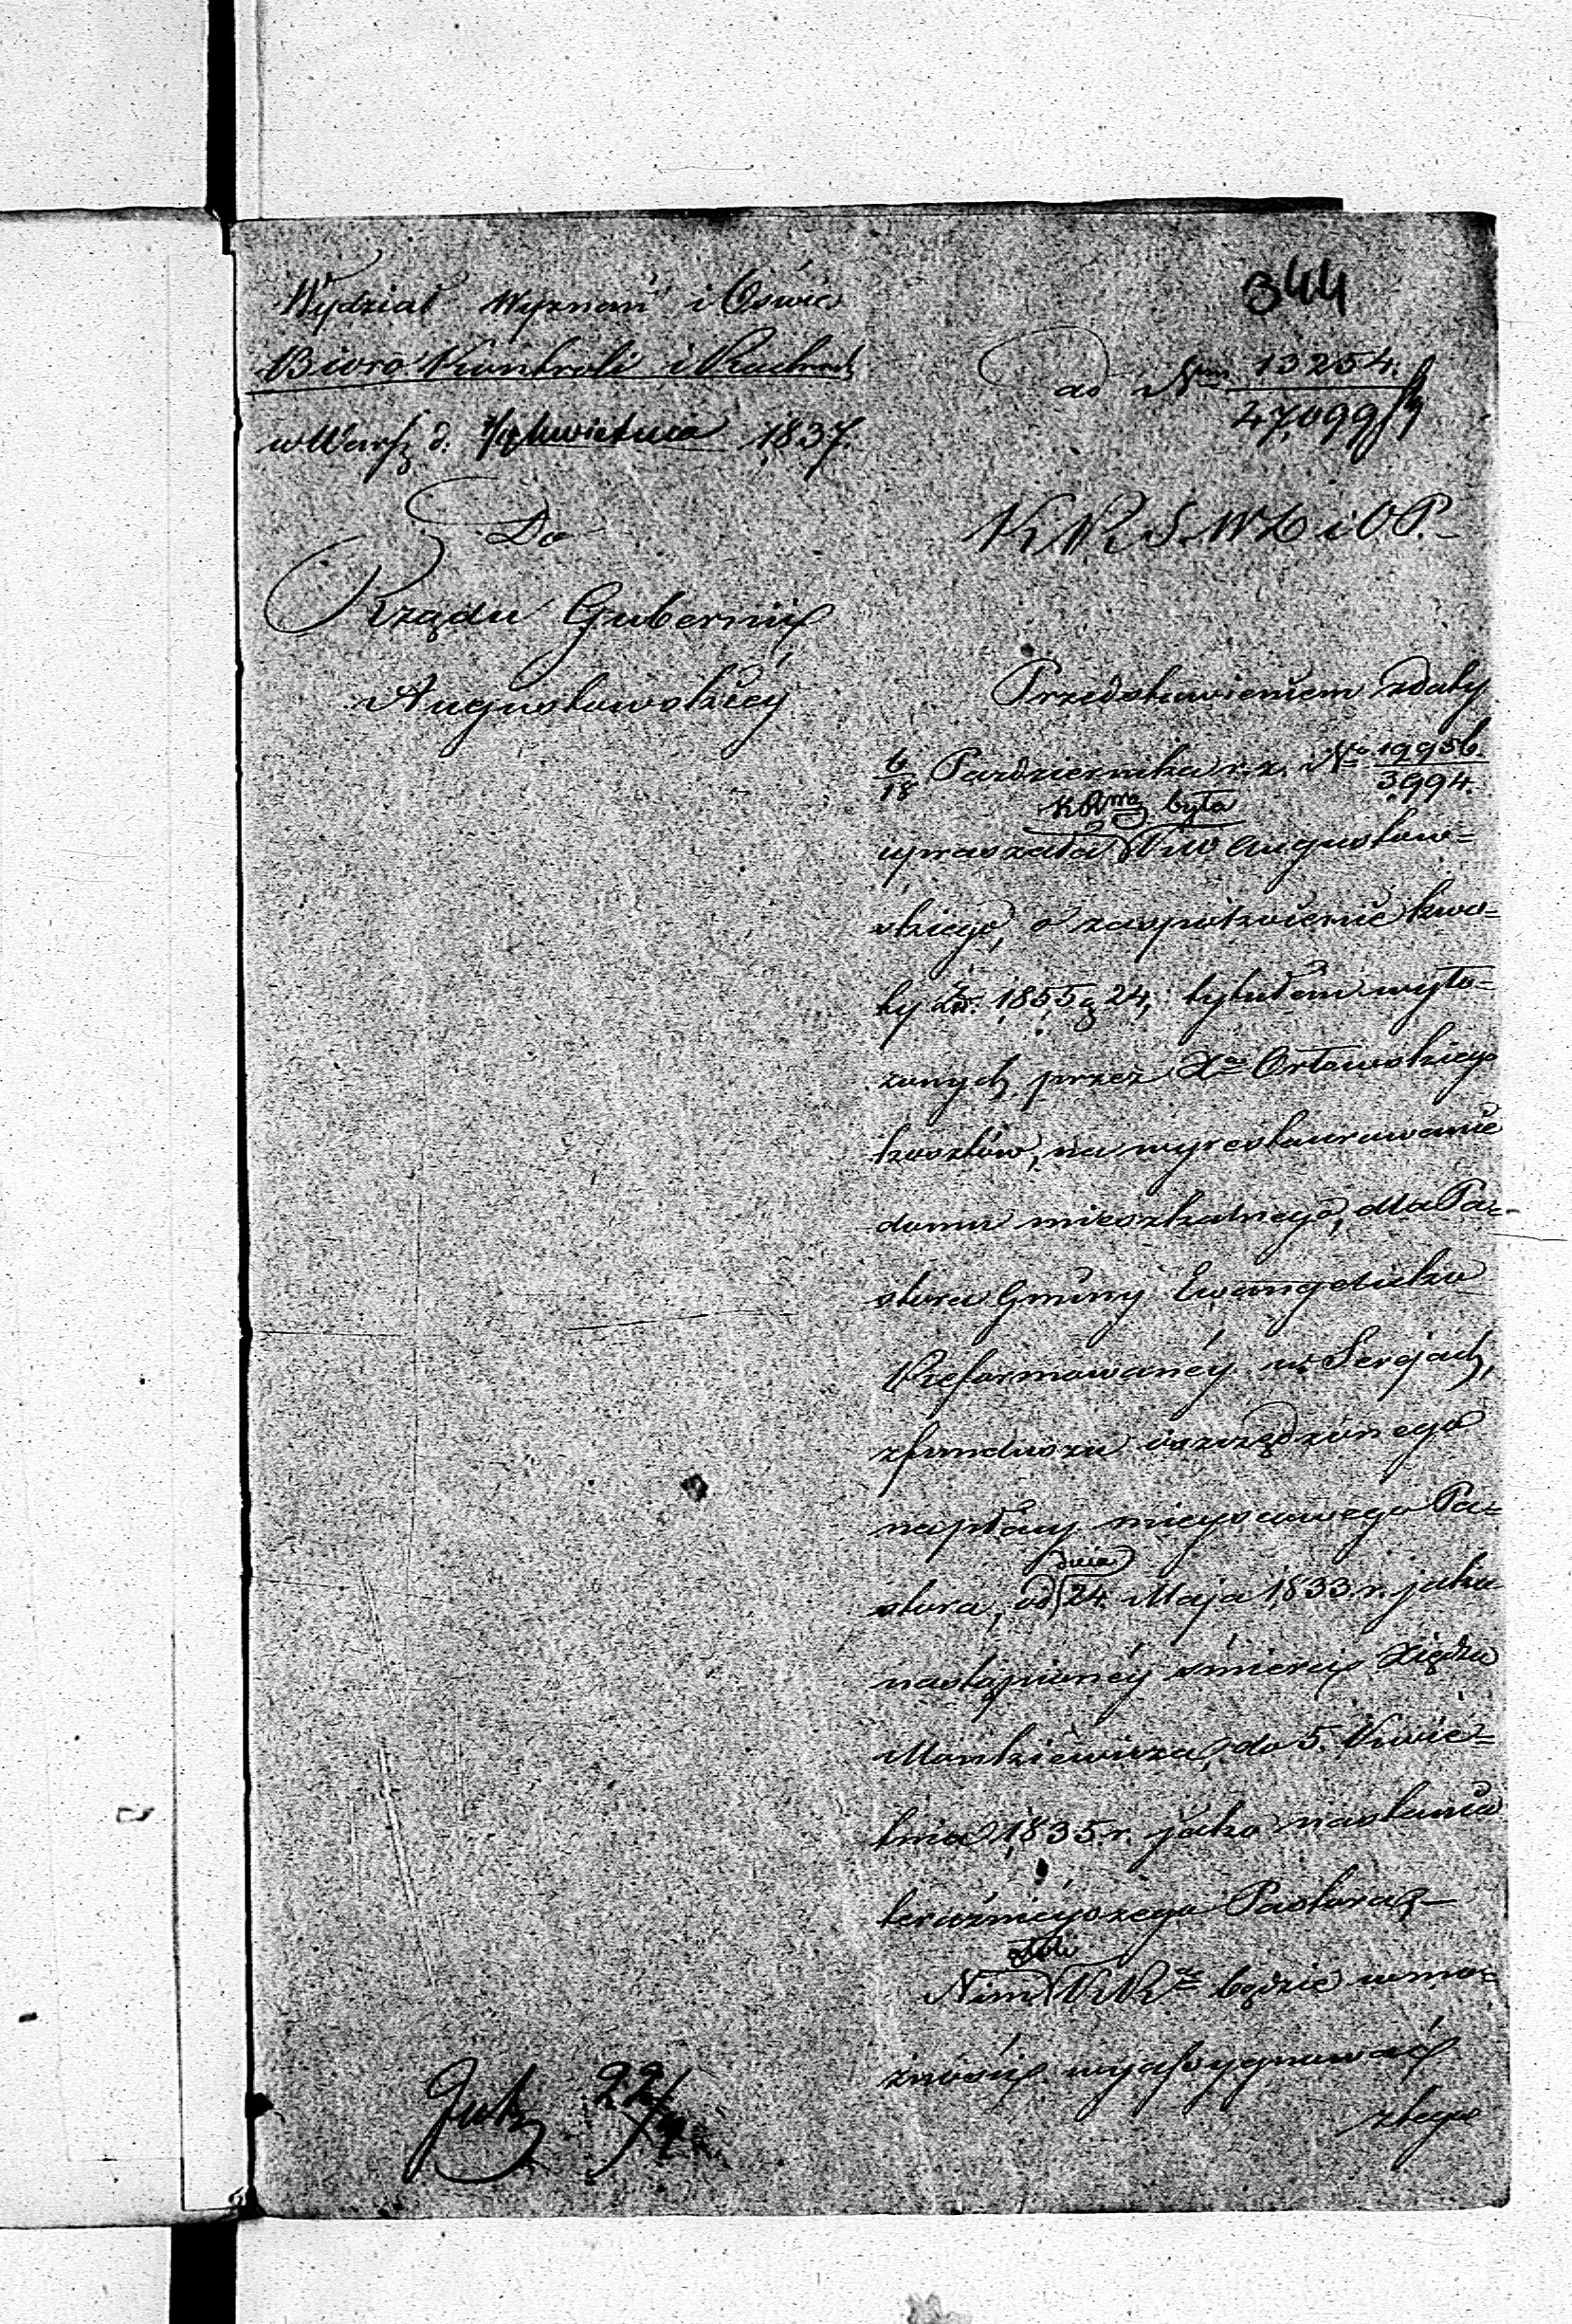 344
Wydział Wyznań i Oświe
Biuro Kontroli i Rachub
w Warsz d. 7/19 kwietnia 1837.
ad Nrum 13254.
47,099
Do
Rządu Gubernii
Augustowskiéy
K R S. W D i O P.
Przedstawieniem z daty
6/18 Pazdziernika r. z. No 19956.
3994.
była
upraszała Augustow-
skiego, o zaspokoienie kwo-
ty Złr. 1855 g 24, tytułem wyło-
zonych przez Xa Orłowskiego
kosztów, na wyrestaurowanie
domu mieszkalnego, dla Pa-
stora Gminy Ewangelicko
Reformowanéy w Serejach,
z funduszu oszczędzonego
na płacy mieyscowego Pa-
dnia
stora, od 24. Maja 1833. r. jako
nastąpionéy śmierci Xiędza
Mońkiewicza, do 5. Kwie-
tnia 1835. r. jako nastania
teraźnieyszego Pastora,
Nim KR będzie w mo-
żności wyassygnować
z tego
22/4